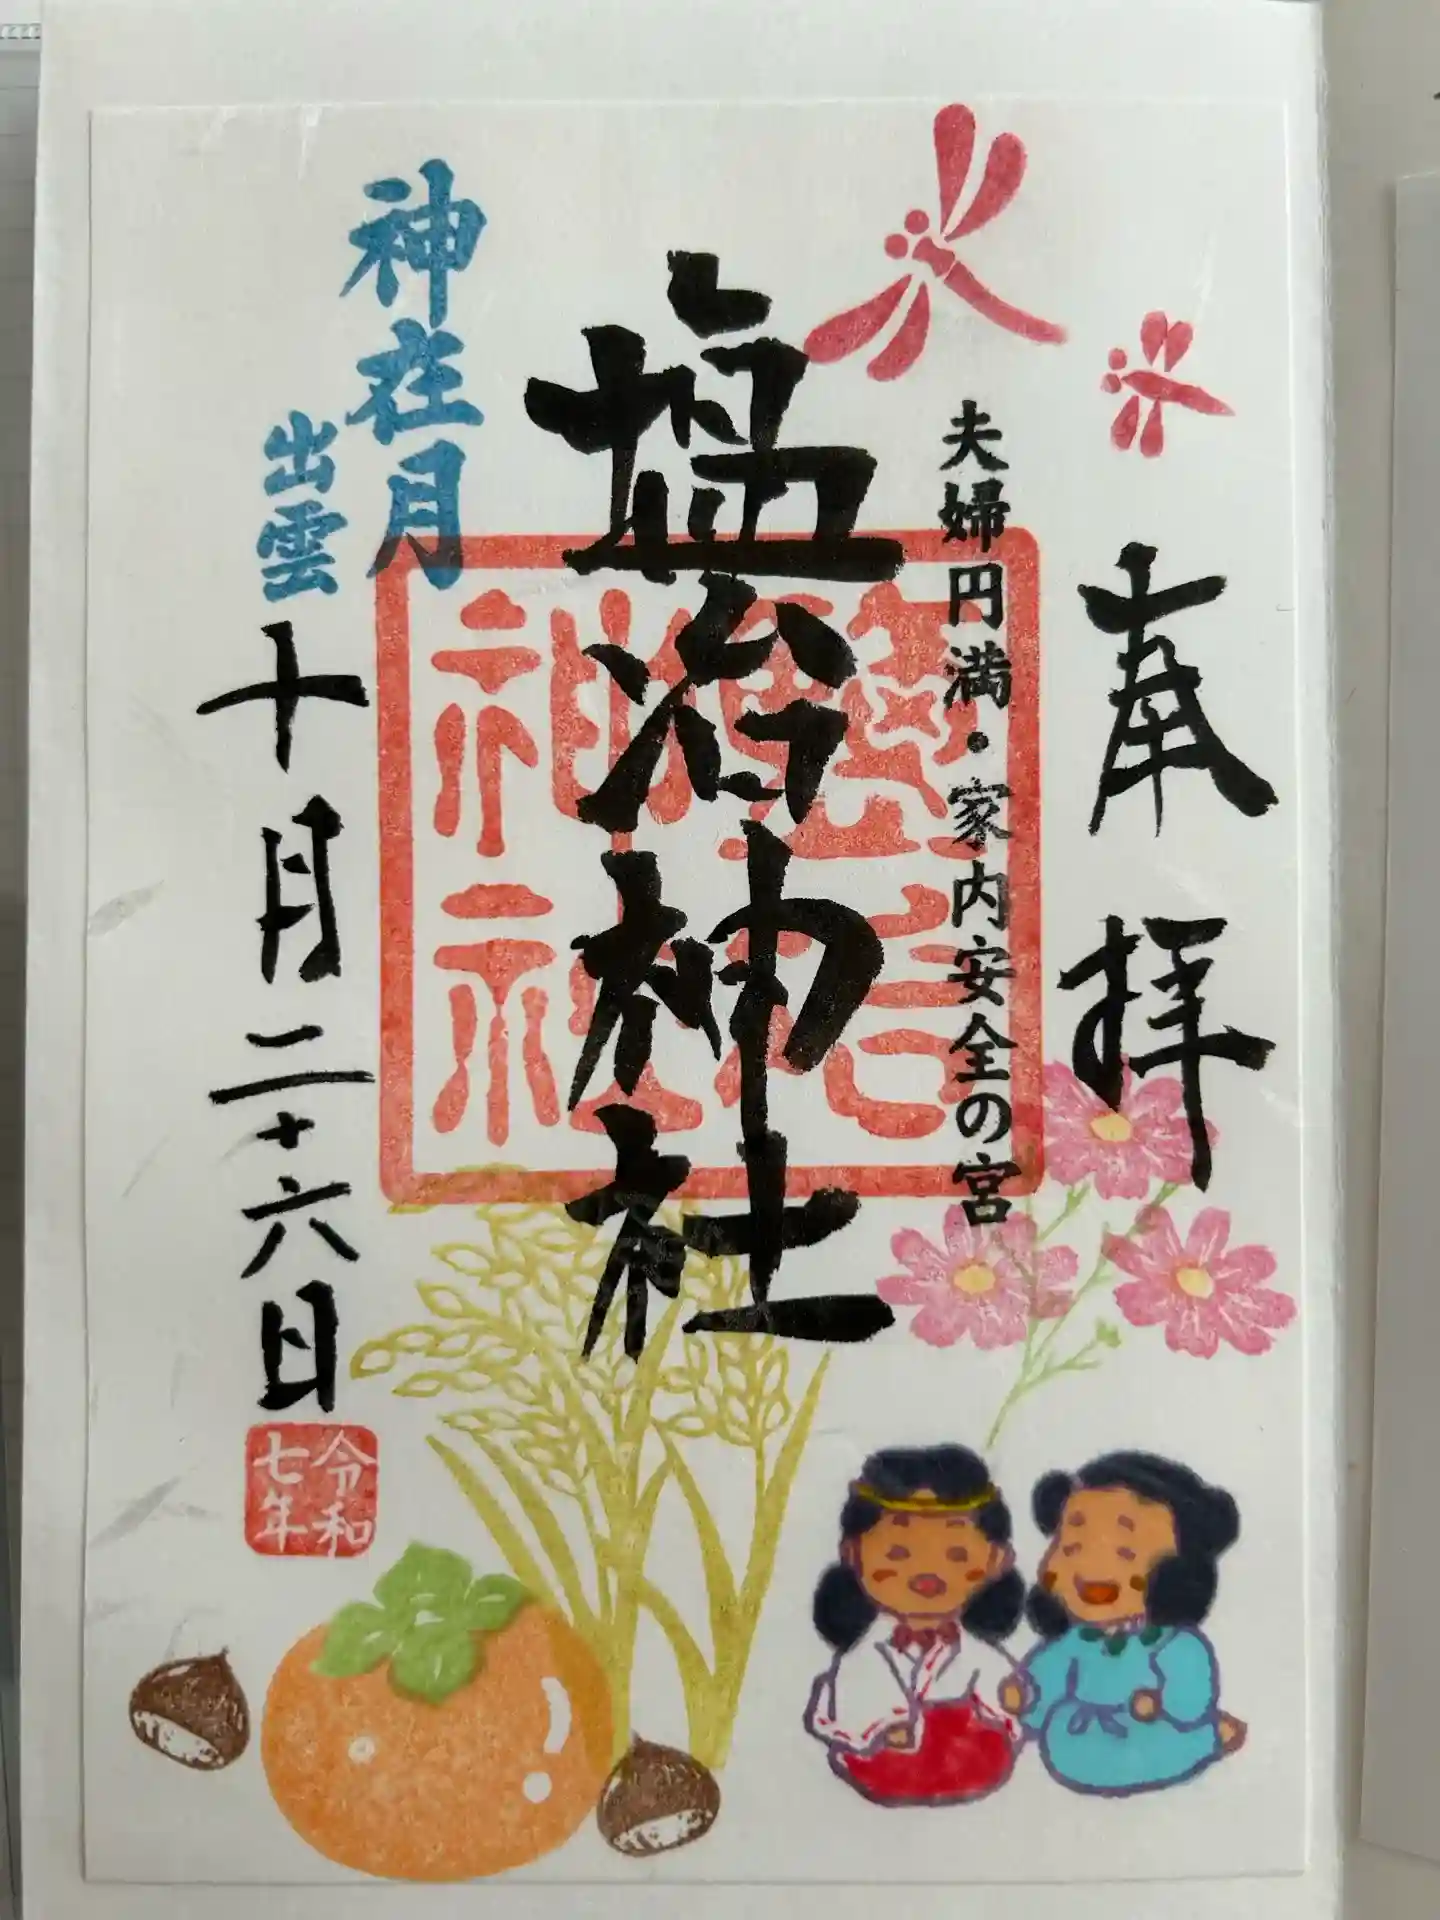 奉拝
夫婦円満・家内安全の宮
塩冶神社
神在月
出雲
十月二十六日
令和
七年